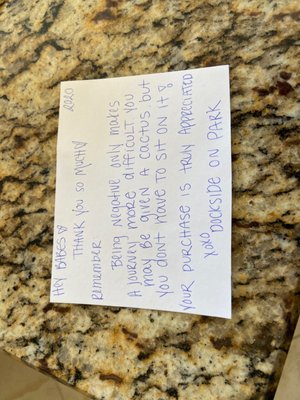 Hey BABES ♡
2020
THANK YOU SO MUCH!♡
Remember
Being negative only makes
A journey more difficult you
may be given a cactus but
you don't have to sit on it!♡
YOUR PURCHASE IS TRULY APPRECIATED
XOXO
DOCKSIDE ON PARK